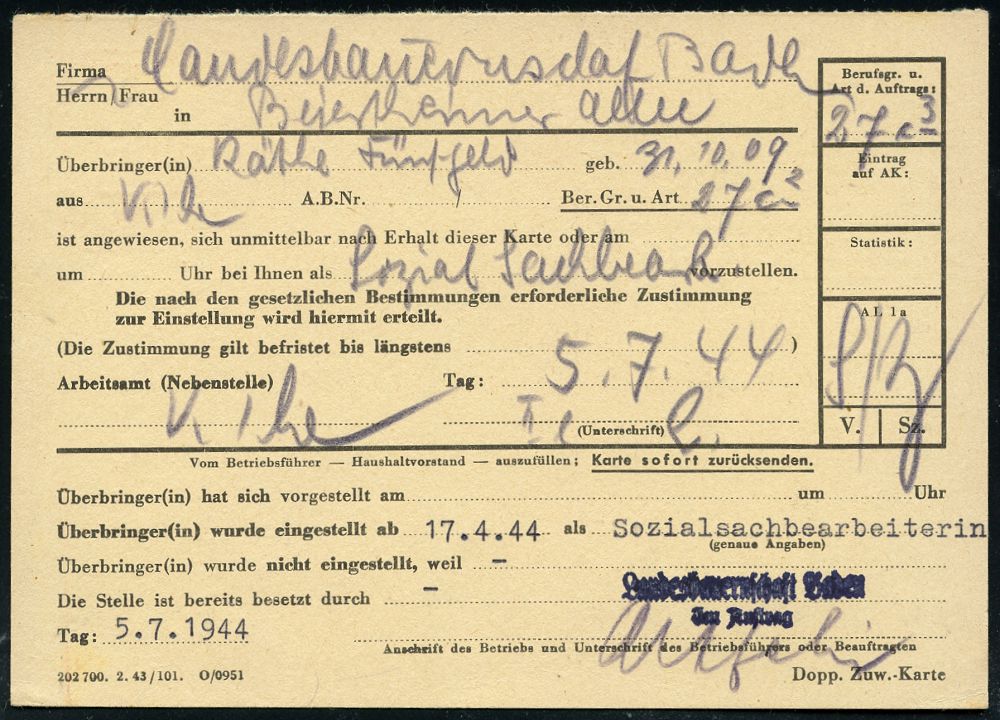 Firma Landesbauernschaft Baden
Herrn/Frau
in Beiertheimer Allee
Berufsgr. u.
Art d. Auftrags:
27 c 3
Überbringer(in) Käthe Fünfgeld geb. 31.10.09
aus K'he A.B.Nr. / Ber. Gr. u. Art 27 c 2
Eintrag
auf AK:
ist angewiesen, sich unmittelbar nach Erhalt dieser Karte oder am
um Uhr bei Ihnen als Sozial Sachbearb. vorzustellen.
Statistik:
Die nach den gesetzlichen Bestimmungen erforderliche Zustimmung
zur Einstellung wird hiermit erteilt.
AL 1a
(Die Zustimmung gilt befristet bis längstens )
Arbeitsamt (Nebenstelle) Tag: 5.7.44
K'he
(Unterschrift)
V. Sz.
Vom Betriebsführer — Haushaltvorstand — auszufüllen; Karte sofort zurücksenden.
Überbringer(in) hat sich vorgestellt am um Uhr
Überbringer(in) wurde eingestellt ab 17.4.44 als Sozialsachbearbeiterin
(genaue Angaben)
Überbringer(in) wurde nicht eingestellt, weil –
Die Stelle ist bereits besetzt durch –
Landesbauernschaft Baden
Im Auftrag
Tag: 5.7.1944
Anschrift des Betriebs und Unterschrift des Betriebsführers oder Beauftragten
202 700. 2. 43/101. O/0951 Dopp. Zuw.-Karte